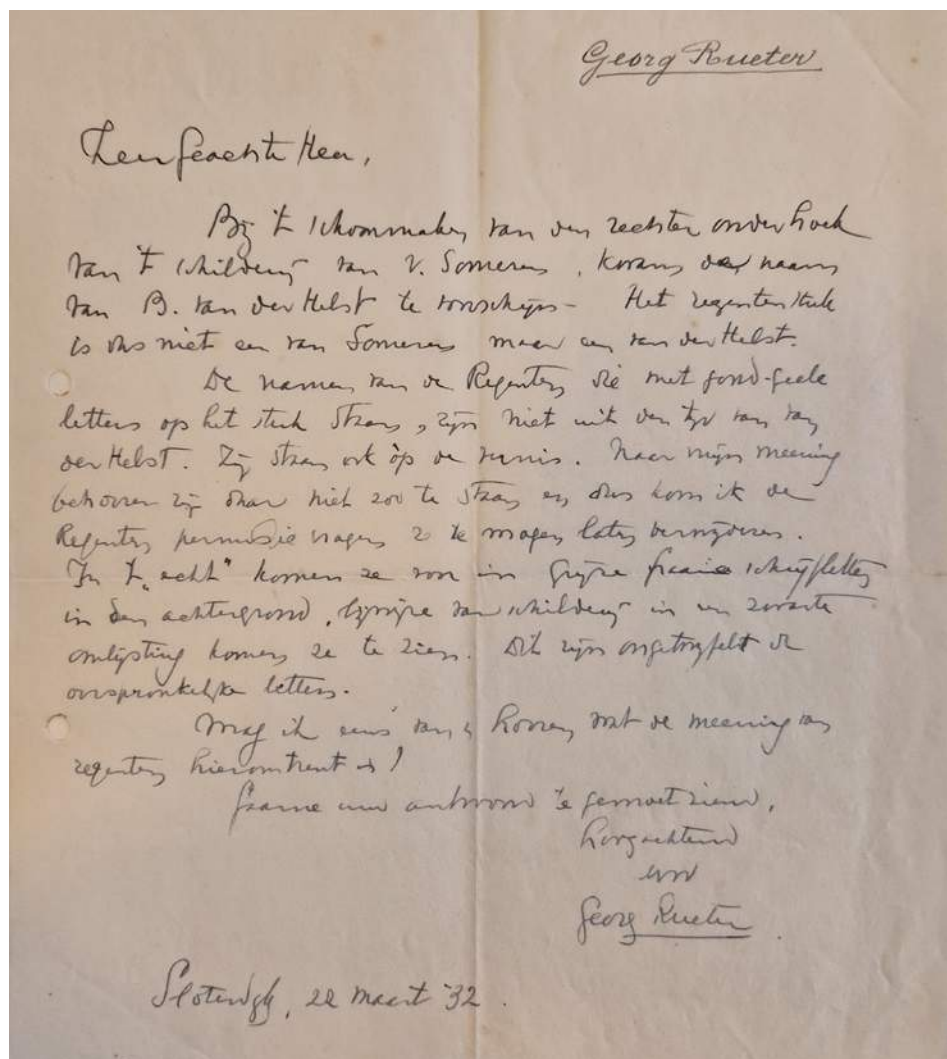 Georg Rueter
Zeer Geachte Heer,
Bij 't schoonmaken van den rechter onderhoek
van 't schilderij van V. Someren, kwam de naam
van B. van der Helst te voorschijn - Het regentenstuk
is dus niet een van Someren maar een van der Helst.
De namen van de Regenten die met goud-geele
letters op het stuk staan, zijn niet uit den tijd van van
der Helst. Zij staan ook òp de vernis. Naar mijn meening
behooren zij daar niet zoo te staan en dus kom ik de
Regenten permissie vragen ze te mogen laten verwijderen.
In 't "echt" komen ze voor in grijze fraaie schrijfletters
in den achtergrond, terzijde van schilderij in een zwarte
omlijsting komen ze te zien. Dit zijn ongetwijfelt de
oorspronkelijke letters.
Mag ik eens van u hooren wat de meening van
regenten hieromtrent is!
Gaarne uw antwoord te gemoet ziend,
hoogachtend
uw
Georg Rueter
Sloterdijk, 22 maart '32.